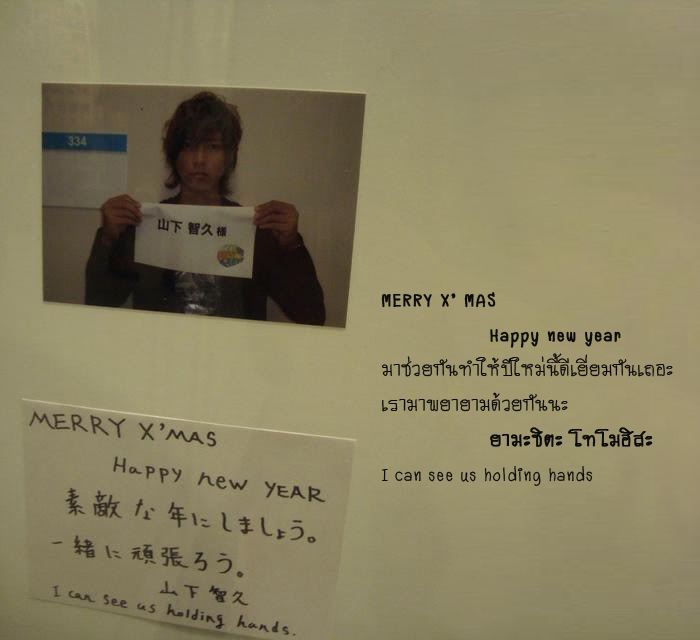 334
山下 智久 様
MERRY X'MAS
Happy new YEAR
素敵な年にしましょう。
一緒に頑張ろう。
山下智久
I can see us holding hands.
MERRY X' MAS
Happy new year
มาช่วยกันทำให้ปีใหม่นี้ดีเยี่ยมกันเถอะ
เรามาพยายามด้วยกันนะ
ยามะชิตะ โทโมฮิสะ
I can see us holding hands